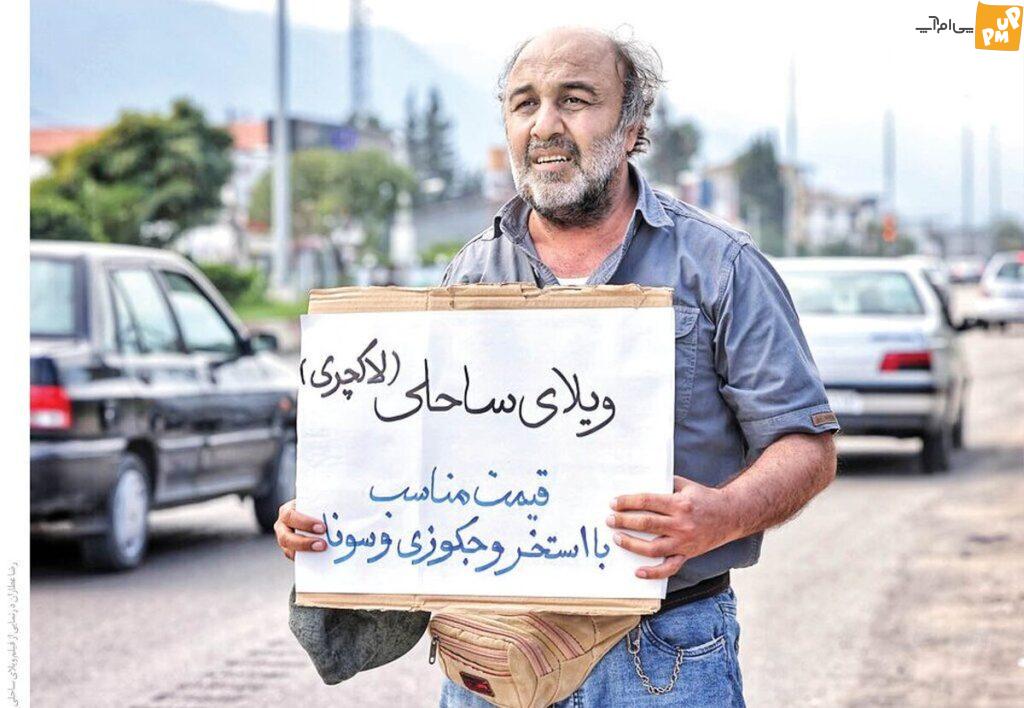 پی‌ام‌آپ
UP
PM
ویلای ساحلی (لاکچری)
قیمت مناسب
با استخر و جکوزی و سونا
رضا عطاران در نمایی از فیلم ویلای ساحلی